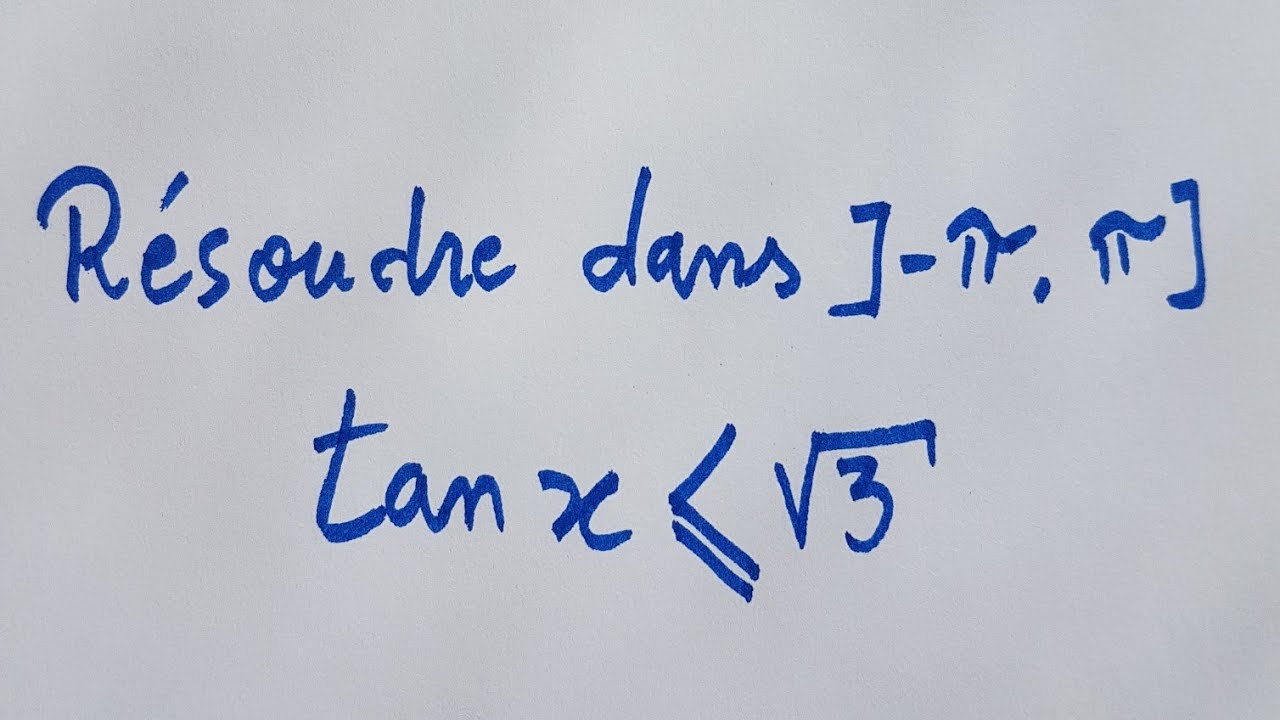 Résoudre dans ]-π, π]
tan x ⩽ √3